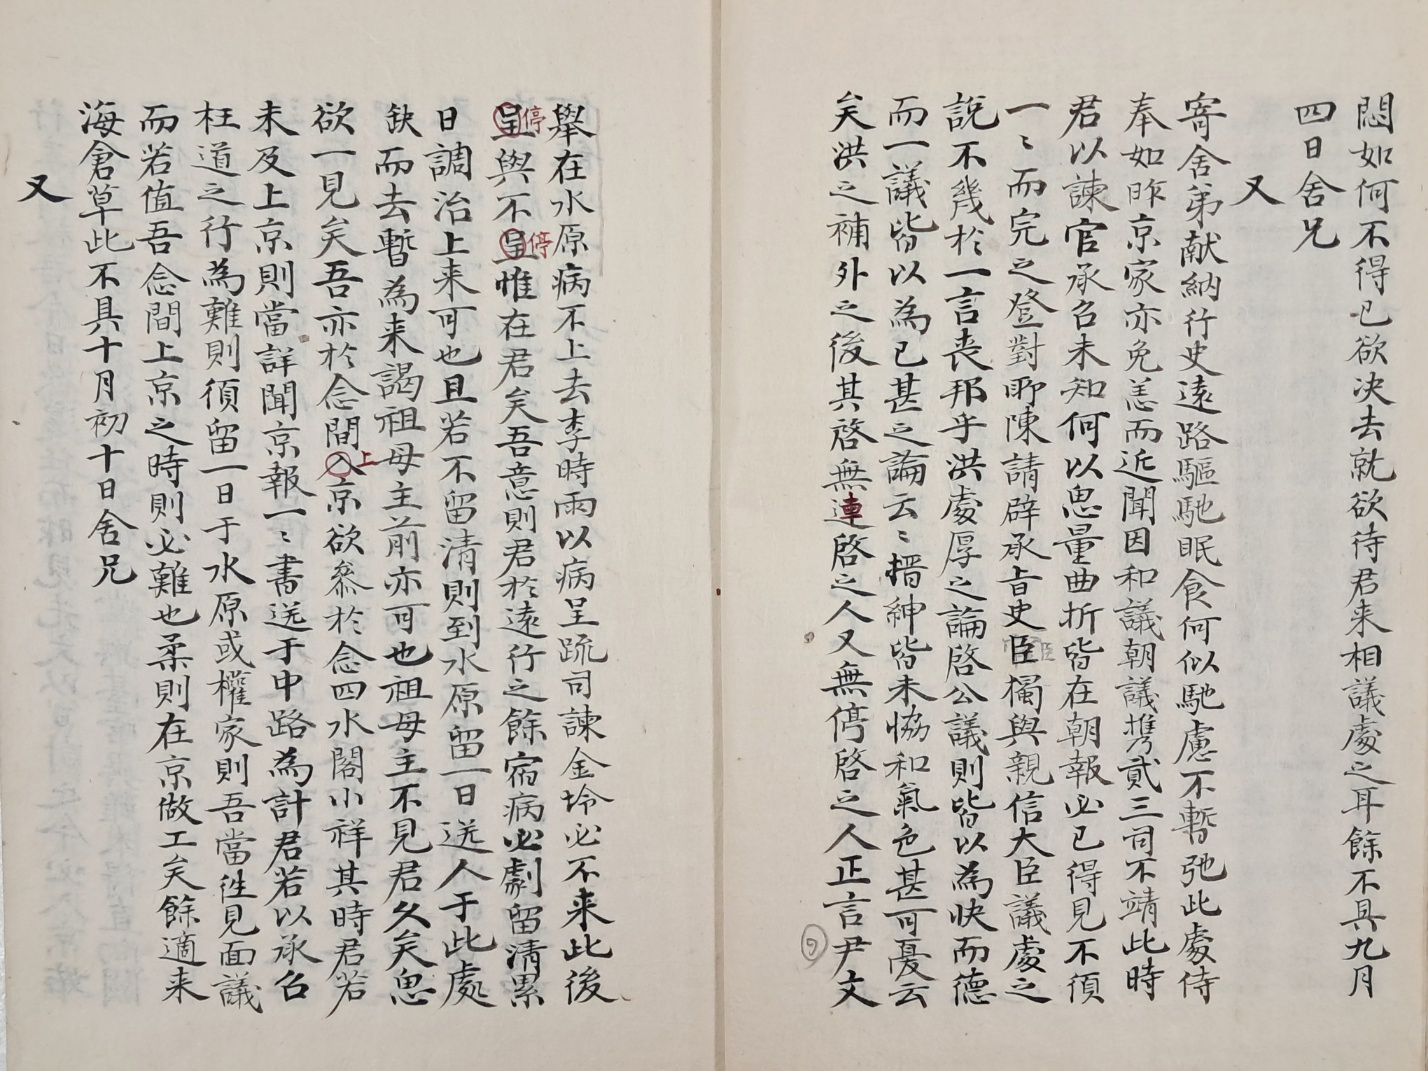 悶如何不得已欲决去就欲待君来相議處之耳餘不具九月
四日舍兄
又
寄舍弟献納行史遠路驅馳眠食何似馳慮不暫弛此處侍
奉如昨京家亦免恙而近聞因和議朝議携貳三司不靖此時
君以諫官承召未知何以思量曲折皆在朝報必已得見不須
一〻而完之登對所陳請辟承旨史臣獨與親信大臣議處之
說不幾於一言喪邦乎洪處厚之論啓公議則皆以為快而德
而一議皆以為已甚之論云〻搢紳皆未恊和氣色甚可憂云
矣洪之補外之後其啓無連啓之人又無停啓之人正言尹文
舉在水原病不上去李時雨以病呈疏司諫金坽必不来此後
呈停與不呈停惟在君矣吾意則君於遠行之餘宿病必劇留清累
日調治上来可也且若不留清則到水原留一日送人于此處
缺而去暫為来謁祖母主前亦可也祖母主不見君久矣思
欲一見矣吾亦於念間入上京欲叅於念四水閣小祥其時君若
未及上京則當詳聞京報一〻書送于中路為計君若以承召
枉道之行為難則須留一日于水原或權家則吾當徃見面議
而若值吾念間上京之時則必難也柔則在京做工矣餘適来
海倉草此不具十月初十日舍兄
又
7